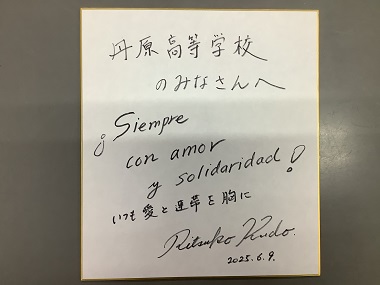 丹原高等学校
のみなさんへ
¡Siempre
con amor
y solidaridad!
いつも愛と連帯を胸に
Ritsuko Kudo.
2025.6.9.